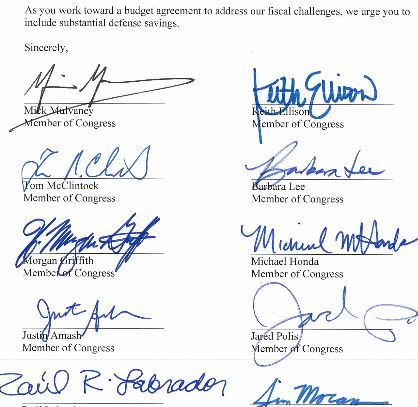 As you work toward a budget agreement to address our fiscal challenges, we urge you to
include substantial defense savings.
Sincerely,
Keith Ellison
Mick Mulvaney
Keith Ellison
Member of Congress
Member of Congress
Barbara Lee
Tom McClintock
Barbara Lee
Member of Congress
Member of Congress
Michael M Honda
Morgan Griffith
Michael Honda
Member of Congress
Member of Congress
Justin Amash
Jared Polis
Member of Congress
Member of Congress
Raúl R. Labrador
Jim Moran